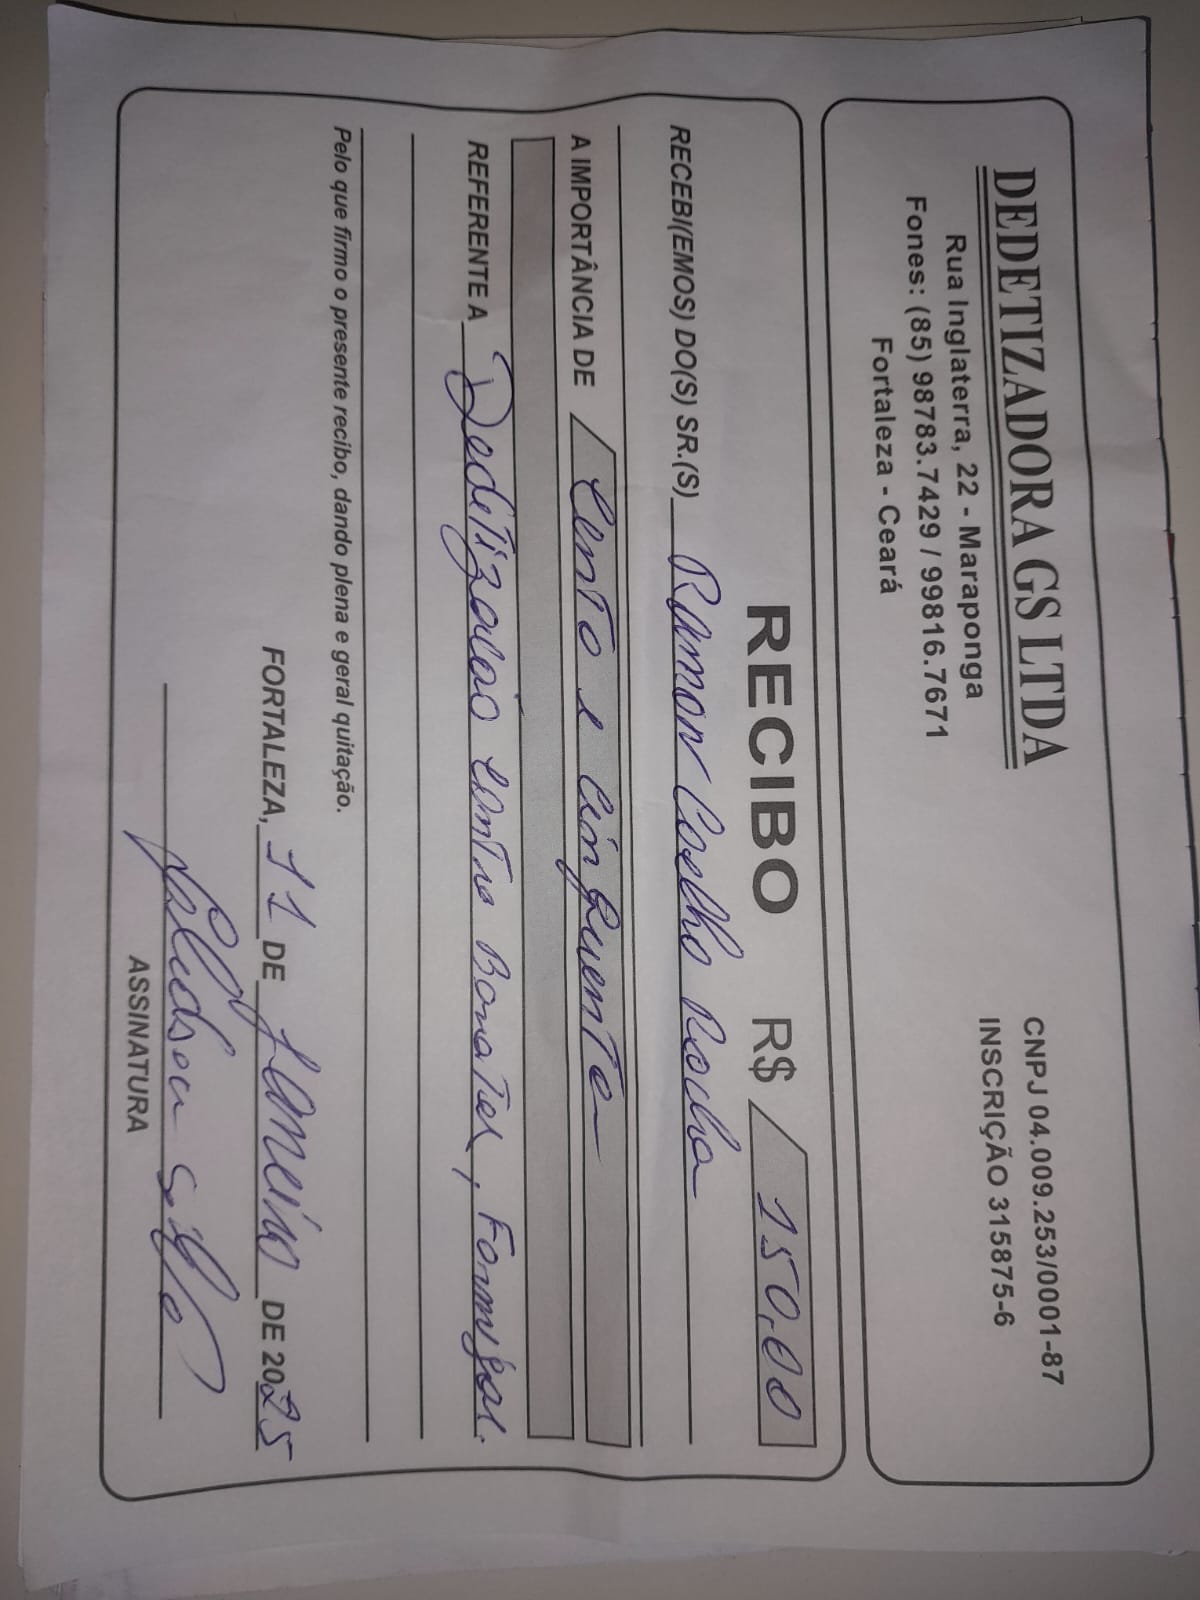 DEDETIZADORA GS LTDA
Rua Inglaterra, 22 - Maraponga
Fones: (85) 98783.7429 / 99816.7671
Fortaleza - Ceará
CNPJ 04.009.253/0001-87
INSCRIÇÃO 315875-6
RECIBO R$ 150,00
RECEBI(EMOS) DO(S) SR.(S) Ramon Coelho Rocha
A IMPORTÂNCIA DE Cento e cinquenta
REFERENTE A Dedetização contra Baratas, Formigas.
Pelo que firmo o presente recibo, dando plena e geral quitação.
FORTALEZA, 11 DE Janeiro DE 2025
ASSINATURA